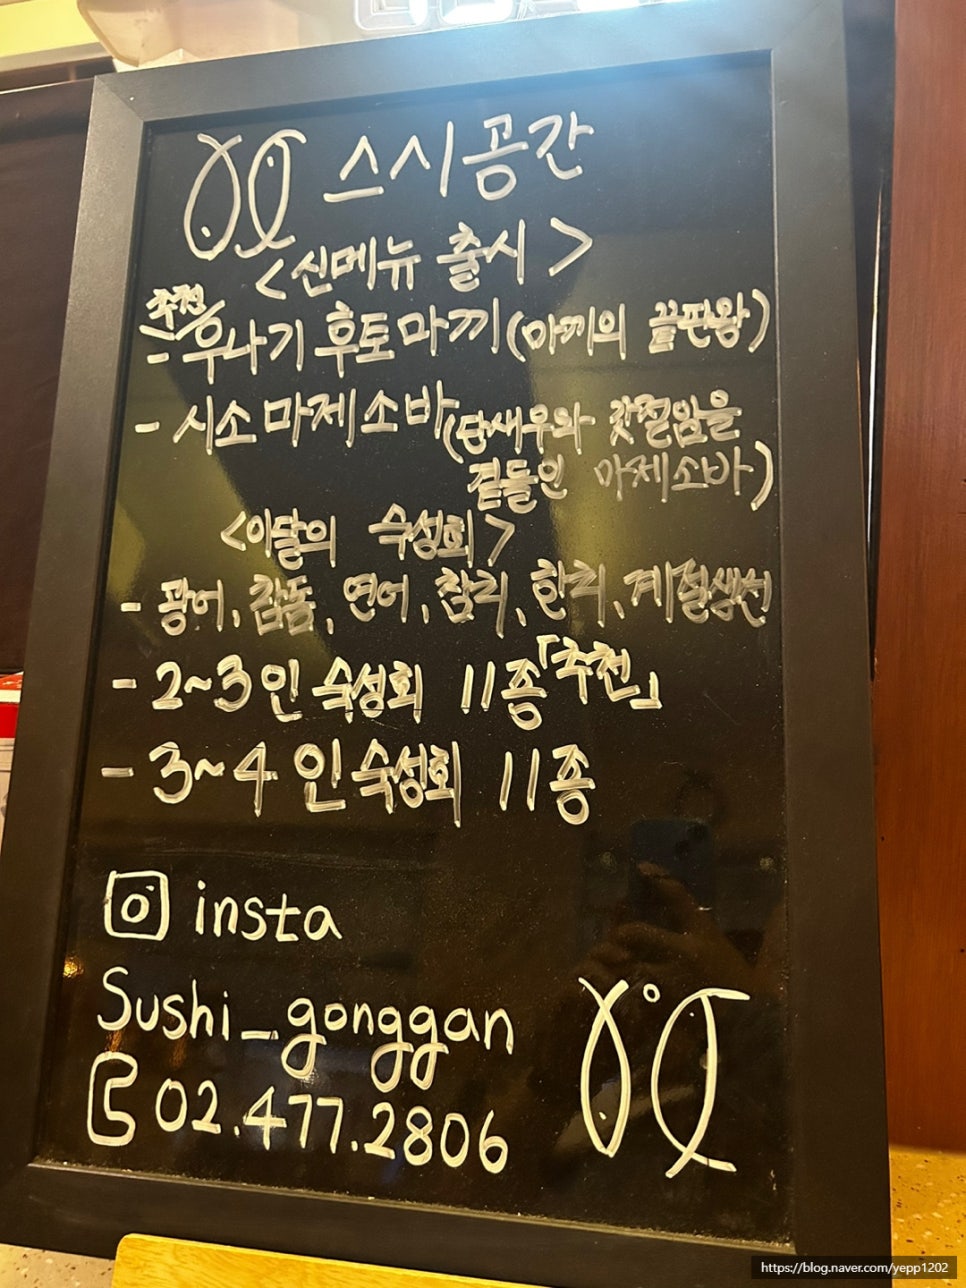 스시공간
<신메뉴 출시>
추천
- 우나기 후토마끼(마끼의 끝판왕)
- 시소마제소바(단새우와 갓절임을
곁들인 마제소바)
<이달의 숙성회>
- 광어, 참돔, 연어, 참치, 한치, 계절생선
- 2~3인 숙성회 11종 「추천」
- 3~4인 숙성회 11종
insta
Sushi_gonggan
02.477.2806
https://blog.naver.com/yepp1202